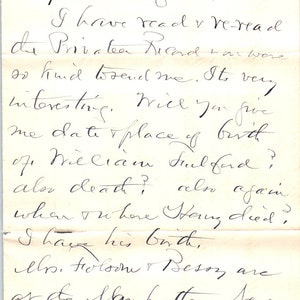 I have read & re-read
the Private Record you were
so kind to send me. Its very
interesting. Will you give
me date & place of birth
of William Fulford?
also death? also again
when & where Henry died?
I have his birth.
Mrs. Folsom & Bessy are
at the